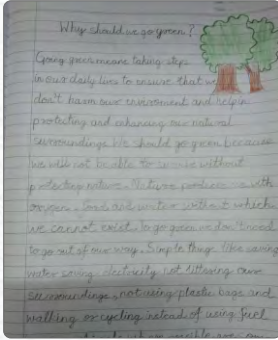 Why should we go green?
Going green means taking steps
in our daily lives to ensure that we
don't harm our environment and help in
protecting and enhancing our natural
surroundings. We should go green because
we will not be able to survive without
protecting nature. Nature provides us with
oxygen, food and water without which
we cannot exist. To go green we don't need
to go out of our way. Simple things like saving
water saving electricity, not littering our
surroundings, not using plastic bags and
walling or cycling instead of using fuel